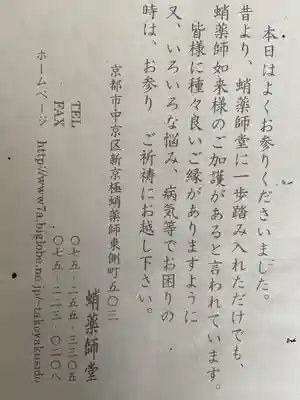 本日はよくお参りくださいました。
昔より、蛸薬師堂に一歩踏み入れただけでも、
蛸薬師如来様のご加護があると言われています。
皆様に種々良いご縁がありますように
又、いろいろな悩み、病気等でお困りの
時は、お参り ご祈祷にお越し下さい。
京都市中京区新京極蛸薬師東側町五〇三
蛸薬師堂
TEL 〇七五-二五五-三三〇五
FAX 〇七五-二一三-〇三〇八
ホームページ http://www7a.biglobe.ne.jp/~takoyakusido